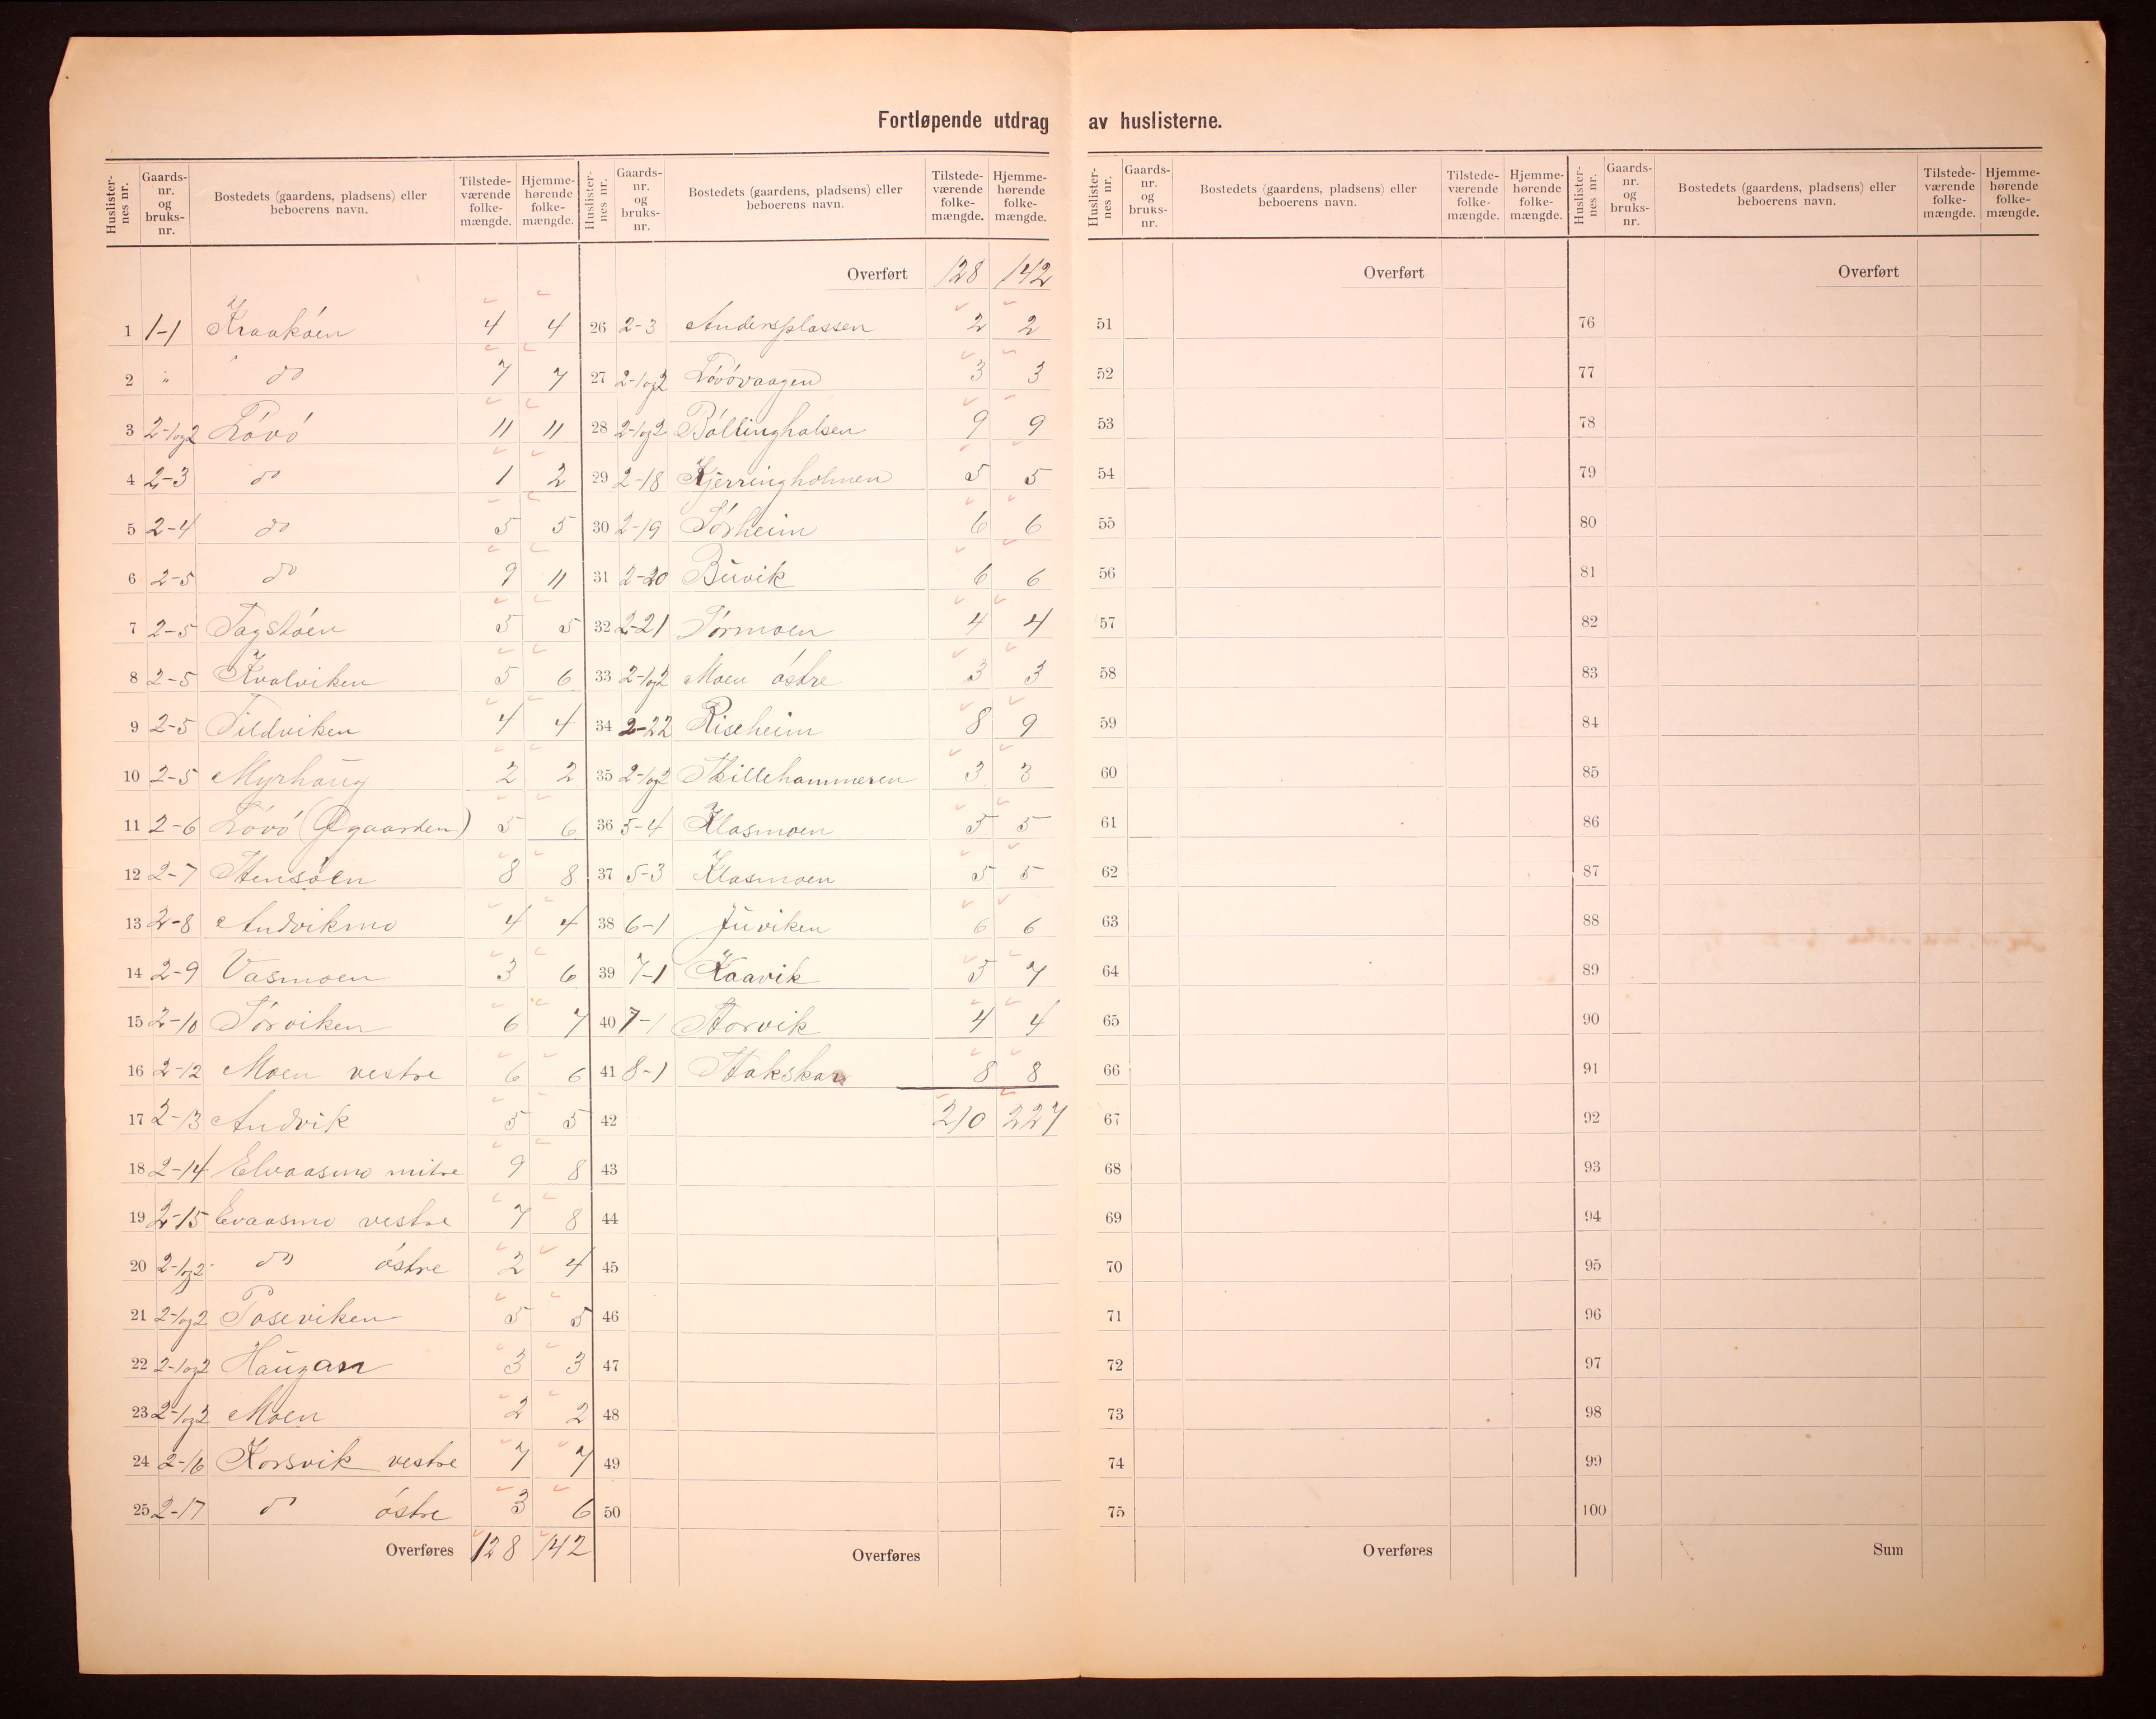 Fortløpende utdrag av huslisterne.
Huslister-nes nr. | Gaards-nr. og bruks-nr. | Bostedets (gaardens, pladsens) eller beboerens navn. | Tilstede-værende folke-mængde. | Hjemme-hørende folke-mængde.
1 1-1 Kraakøen 4 4
2 " do 7 7
3 2-1og2 Lóvó 11 11
4 2-3 do 1 2
5 2-4 do 5 5
6 2-5 do 9 11
7 2-5 5 5
8 2-5 Kvalviken 5 6
9 2-5 Tildviken 4 4
10 2-5 Myrhaug 2 2
11 2-6 Lóvó (Øgaarden) 5 6
12 2-7 Stensóen 8 8
13 2-8 Andvikmo 4 4
14 2-9 Vasmoen 3 6
15 2-10 Sórviken 6 7
16 2-12 Moen vestre 6 6
17 2-13 Andvik 5 5
18 2-14 Elvaasmo mitre 9 8
19 2-15 Evaasmo vestre 7 8
20 2-1og2 do óstre 2 4
21 2-1og2 Poseviken 5 5
22 2-1og2 Haugan 3 3
23 2-1og2 Moen 2 2
24 2-16 Korsvik vestre 7 7
25 2-17 do óstre 3 6
Overføres 128 142
Huslister-nes nr. | Gaards-nr. og bruks-nr. | Bostedets (gaardens, pladsens) eller beboerens navn. | Tilstede-værende folke-mængde. | Hjemme-hørende folke-mængde.
Overført 128 142
26 2-3 Andersplassen 2 2
27 2-1og2 Lóvóvaagen 3 3
28 2-1og2 Bóllinghalsen 9 9
29 2-18 Kjerringholmen 5 5
30 2-19 Sórheim 6 6
31 2-20 Buvik 6 6
32 2-21 Sórmoen 4 4
33 2-1og2 Moen óstre 3 3
34 2-22 Riseheim 8 9
35 2-1og2 Stillehammeren 3 3
36 5-4 Klasmoen 5 5
37 5-3 Klasmoen 5 5
38 6-1 Juviken 6 6
39 7-1 Kaavik 5 7
40 7-1 Storvik 4 4
41 8-1 Stakskar 8 8
42 210 227
43
44
45
46
47
48
49
50
Overføres
Huslister-nes nr. | Gaards-nr. og bruks-nr. | Bostedets (gaardens, pladsens) eller beboerens navn. | Tilstede-værende folke-mængde. | Hjemme-hørende folke-mængde.
Overført
51
52
53
54
55
56
57
58
59
60
61
62
63
64
65
66
67
68
69
70
71
72
73
74
75
Overføres
Huslister-nes nr. | Gaards-nr. og bruks-nr. | Bostedets (gaardens, pladsens) eller beboerens navn. | Tilstede-værende folke-mængde. | Hjemme-hørende folke-mængde.
Overført
76
77
78
79
80
81
82
83
84
85
86
87
88
89
90
91
92
93
94
95
96
97
98
99
100
Sum